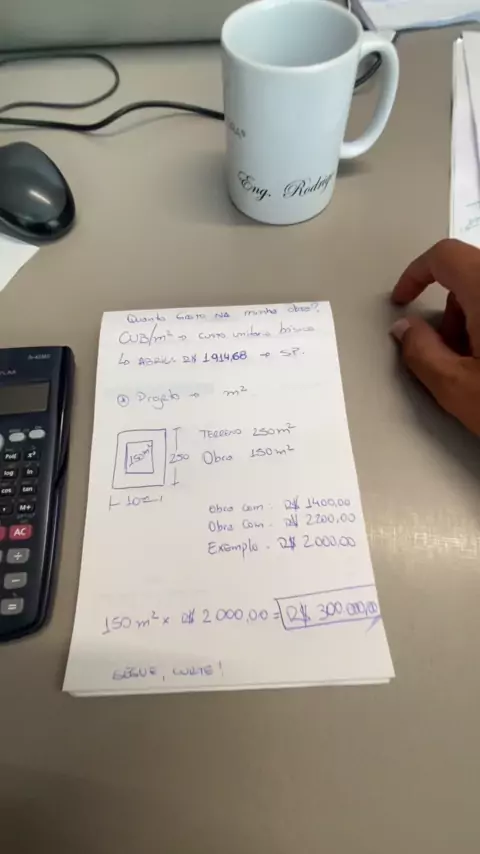 Eng. Rodrig
Quanto Gasto na minha obra?
CUB/m² → custo unitário básico
↳ ABRIL R$ 1914,68 → SP.
Projeto → m²
150m²
250
TERRENO 250m²
Obra 150m²
Obra com. R$ 1400,00
Obra com. R$ 2200,00
Exemplo. R$ 2000,00
150 m² x R$ 2000,00 = R$ 300.000,00
SEGUE, CURTE!
Pol(
x³
log
ln
cos
tan
M+
AC
÷
−
=